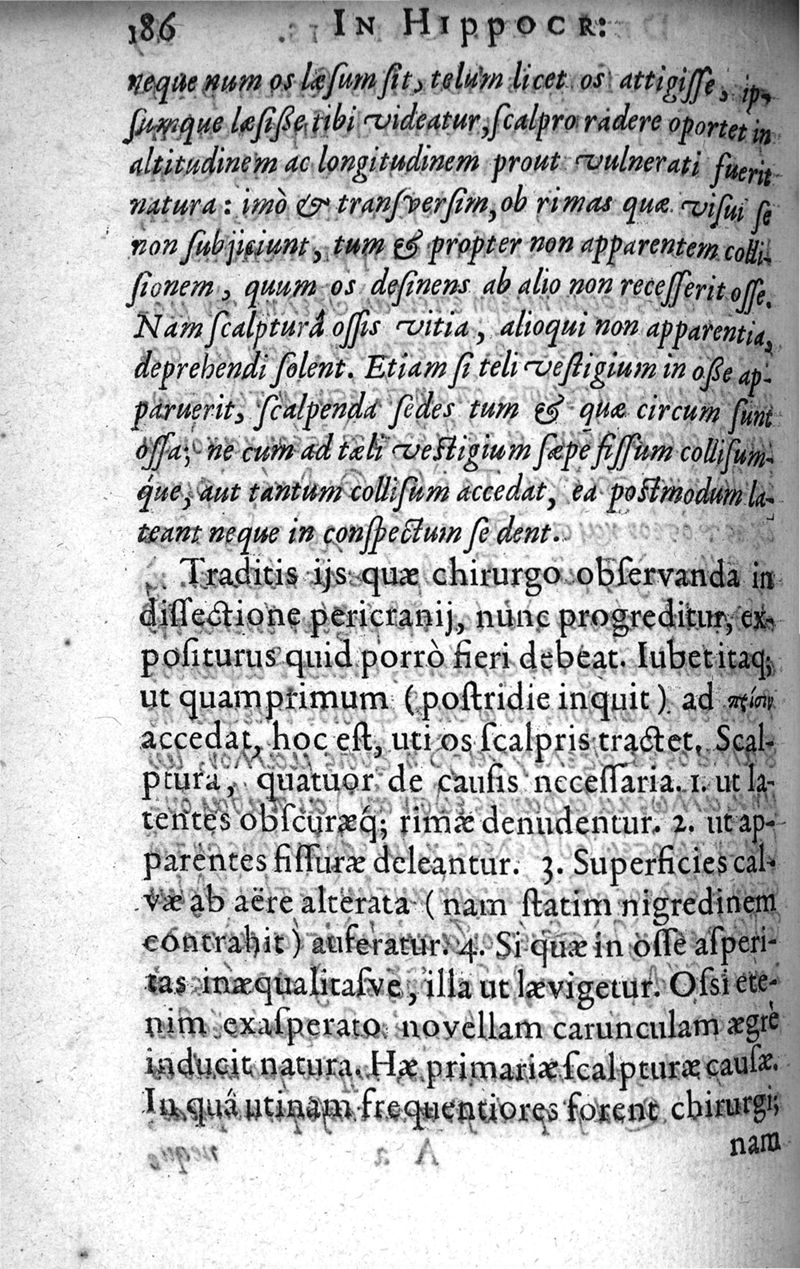 186 IN HIPPOCR:
neque num os læsum sit, telum licet os attigisse, ip-
sumque læsisse tibi videatur, scalpro radere oportet in
altitudinem ac longitudinem prout vulnerati fuerit
natura: imò & transversim, ob rimas quæ visui se
non subjiciunt, tum & propter non apparentem colli-
sionem, quum os desinens ab alio non recesserit osse.
Nam scalpturâ ossis vitia, alioqui non apparentia,
deprehendi solent. Etiam si teli vestigium in osse ap-
paruerit, scalpenda sedes tum & quæ circum sunt
ossa; ne cum ad tæli vestigium sæpe fissum collisum-
q́ue, aut tantum collisum accedat, ea postmodum la-
teant neque in conspectum se dent.
Traditis ijs quæ chirurgo observanda in
dissectione pericranij, nunc progreditur, ex-
positurus quid porrò fieri debeat. Iubet itaq;
ut quamprimum (postridie inquit) ad
accedat, hoc est, uti os scalpris tractet. Scal-
ptura, quatuor de causis necessaria. 1. ut la-
tentes obscuræq́; rimæ denudentur. 2. ut ap-
parentes fissuræ deleantur. 3. Superficies cal-
væ ab aëre alterata (nam statim nigredinem
contrahit) auferatur. 4. Si quæ in osse asperi-
tas inæqualitasve, illa ut lævigetur. Ossi ete-
nim exasperato novellam carunculam ægrè
inducit natura. Hæ primariæ scalpturæ causæ.
In quâ utinam frequentiores forent chirurgi;
nam